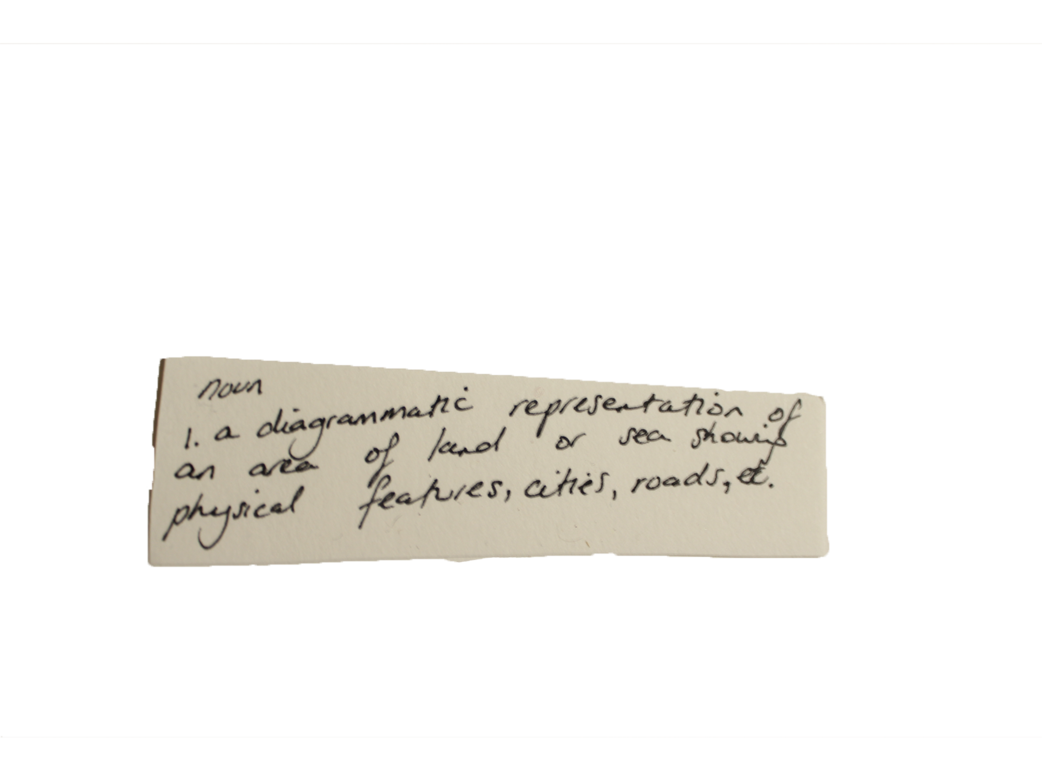 noun
1. a diagrammatic representation of
an area of land or sea showing
physical features, cities, roads, etc.